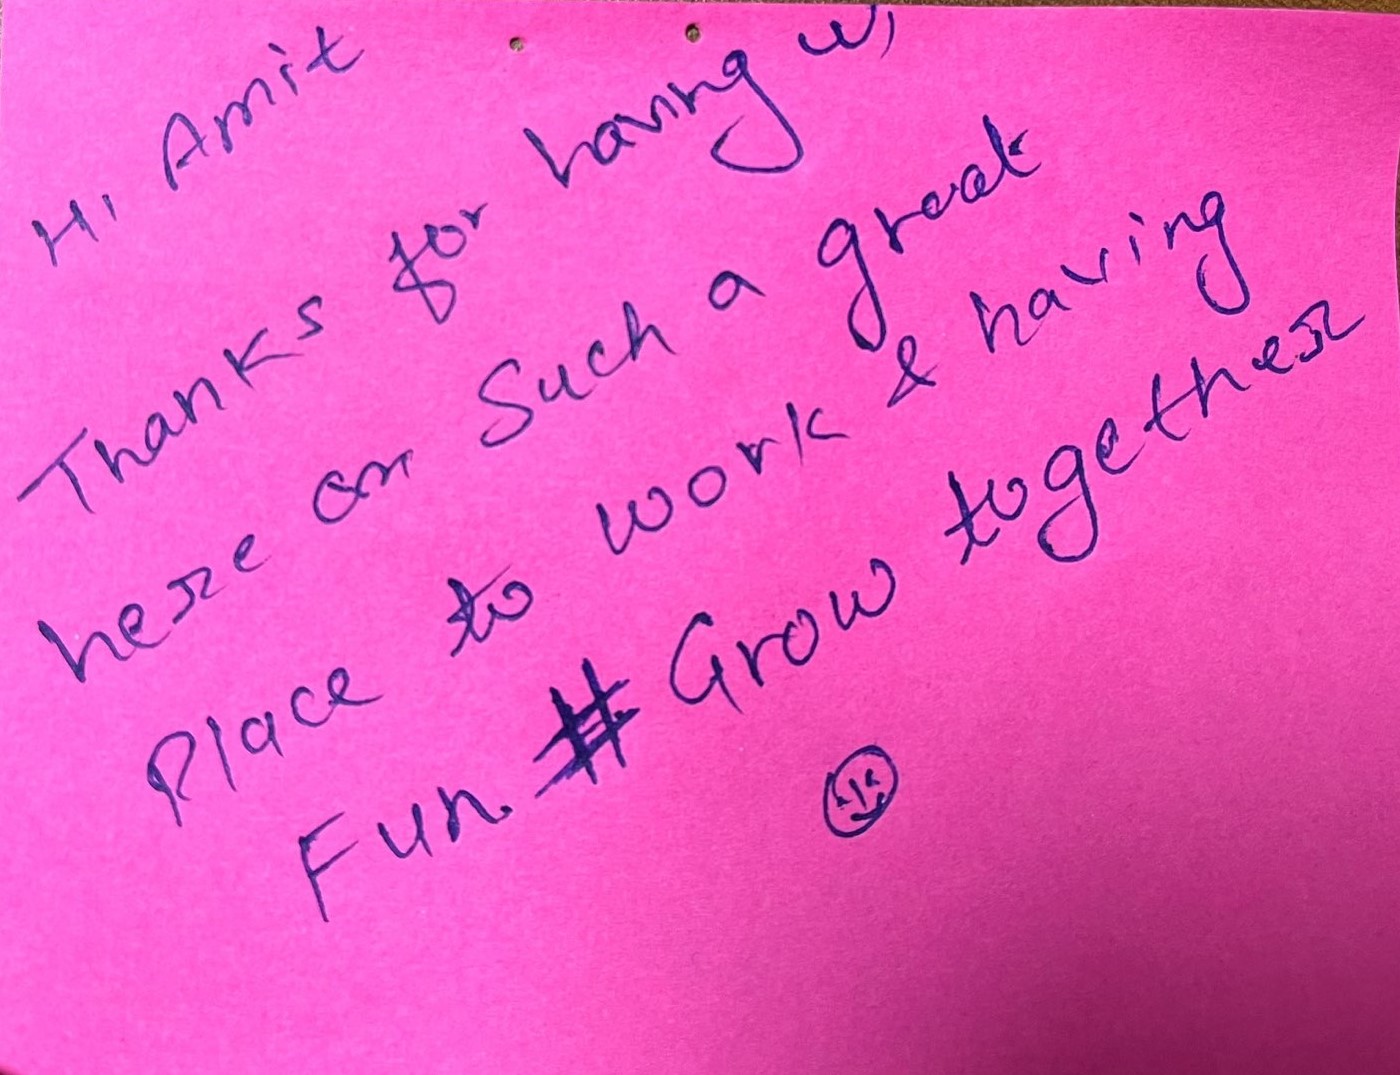 Hi, Amit
Thanks for having us
here on Such a great
Place to work & having
Fun. # Grow together